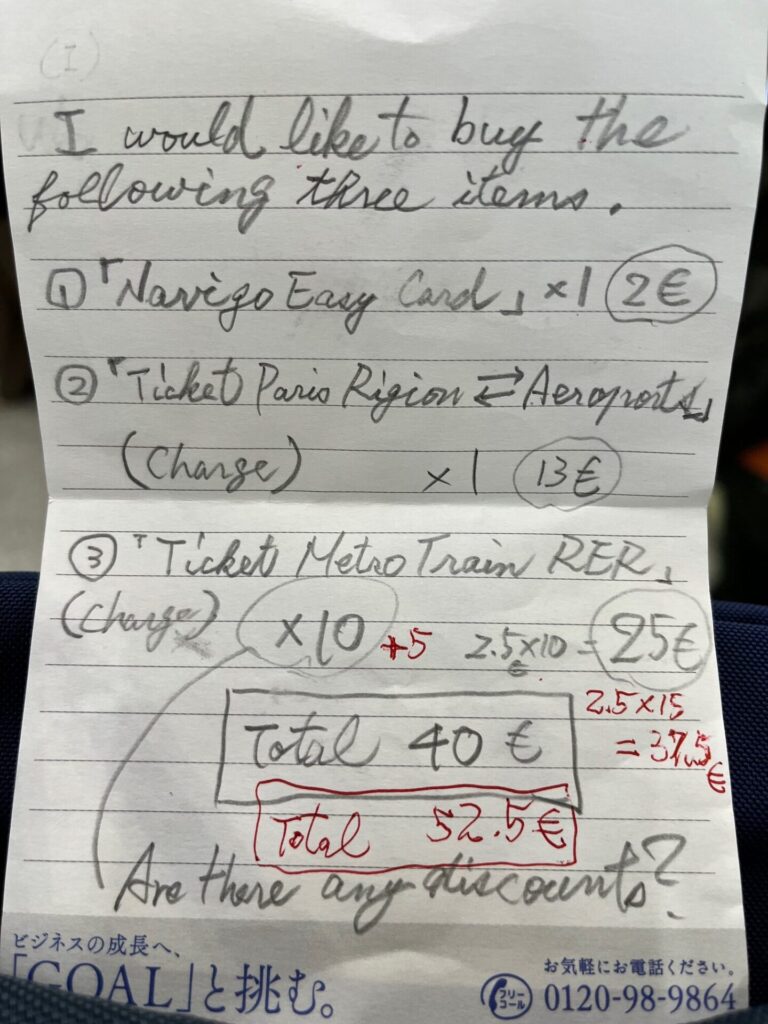 (I)
I would like to buy the
following three items.
①「Navigo Easy Card」×1 2€
②「Ticket Paris Rigion ⇄ Aeroports」
(Charge) ×1 13€
③「Ticket Metro Train RER」
(Charge) ×10 +5 2.5€×10=25€
2.5×15
=37.5€
Total 40€
Total 52.5€
Are there any discounts?
ビジネスの成長へ、
「GOAL」と挑む。
お気軽にお電話ください。
フリーコール 0120-98-9864